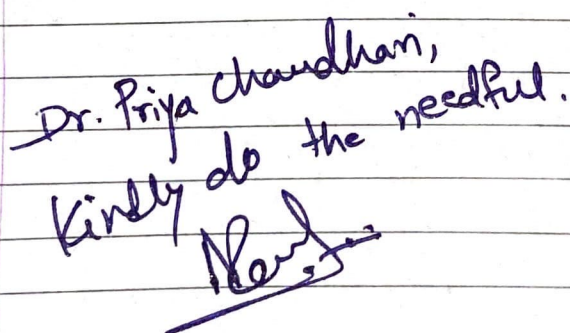 Dr. Priya Chaudhari,
Kindly do the needful.